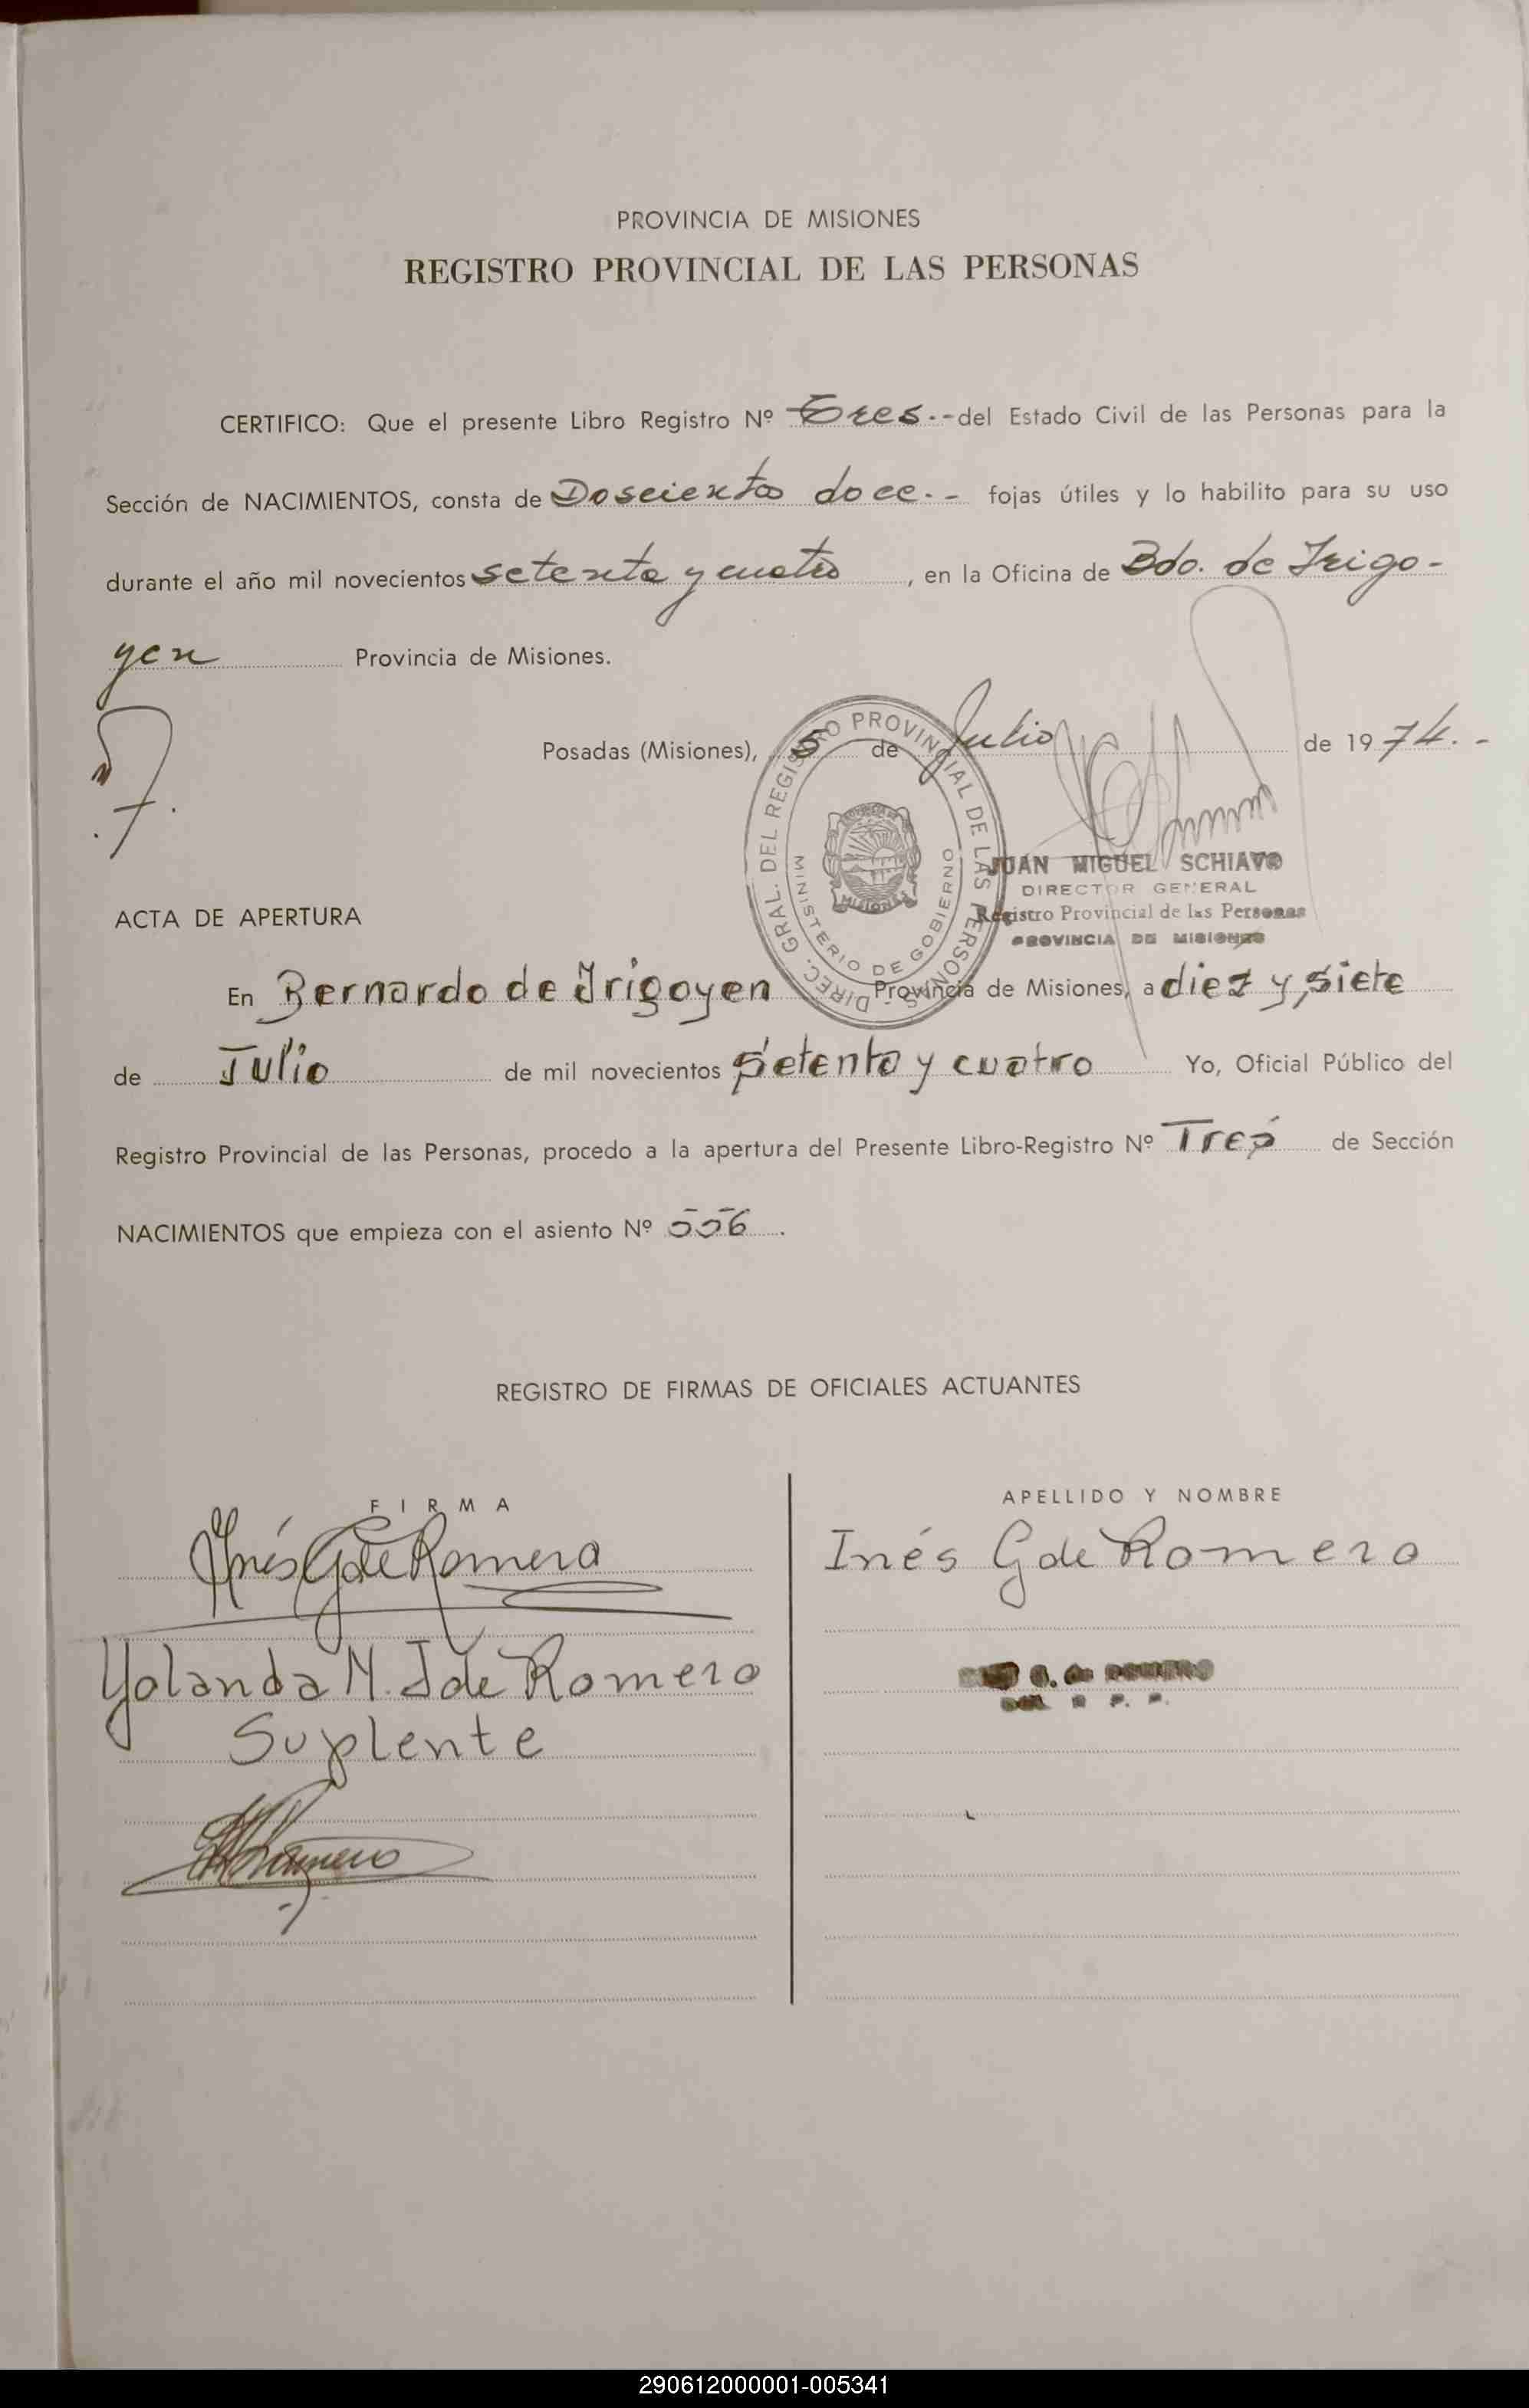 PROVINCIA DE MISIONES
REGISTRO PROVINCIAL DE LAS PERSONAS
CERTIFICO: Que el presente Libro Registro Nº Tres.- del Estado Civil de las Personas para la
Sección de NACIMIENTOS, consta de Doscientos doce.- fojas útiles y lo habilito para su uso
durante el año mil novecientos setenta y cuatro, en la Oficina de Bdo. de Irigo-
yen Provincia de Misiones.
Posadas (Misiones), 5 de Julio de 1974.-
DIREC. GRAL. DEL REGISTRO PROVINCIAL DE LAS PERSONAS
MINISTERIO DE GOBIERNO
MISIONES
JUAN MIGUEL SCHIAVO
DIRECTOR GENERAL
Registro Provincial de las Personas
PROVINCIA DE MISIONES
ACTA DE APERTURA
En Bernardo de Irigoyen Provincia de Misiones, a diez y siete
de Julio de mil novecientos setenta y cuatro Yo, Oficial Público del
Registro Provincial de las Personas, procedo a la apertura del Presente Libro-Registro Nº Tres de Sección
NACIMIENTOS que empieza con el asiento Nº 556.
REGISTRO DE FIRMAS DE OFICIALES ACTUANTES
FIRMA
APELLIDO Y NOMBRE
Inés G de Romero
Inés G de Romero
Yolanda M. J de Romero
G. de ROMERO
Suplente
290612000001-005341